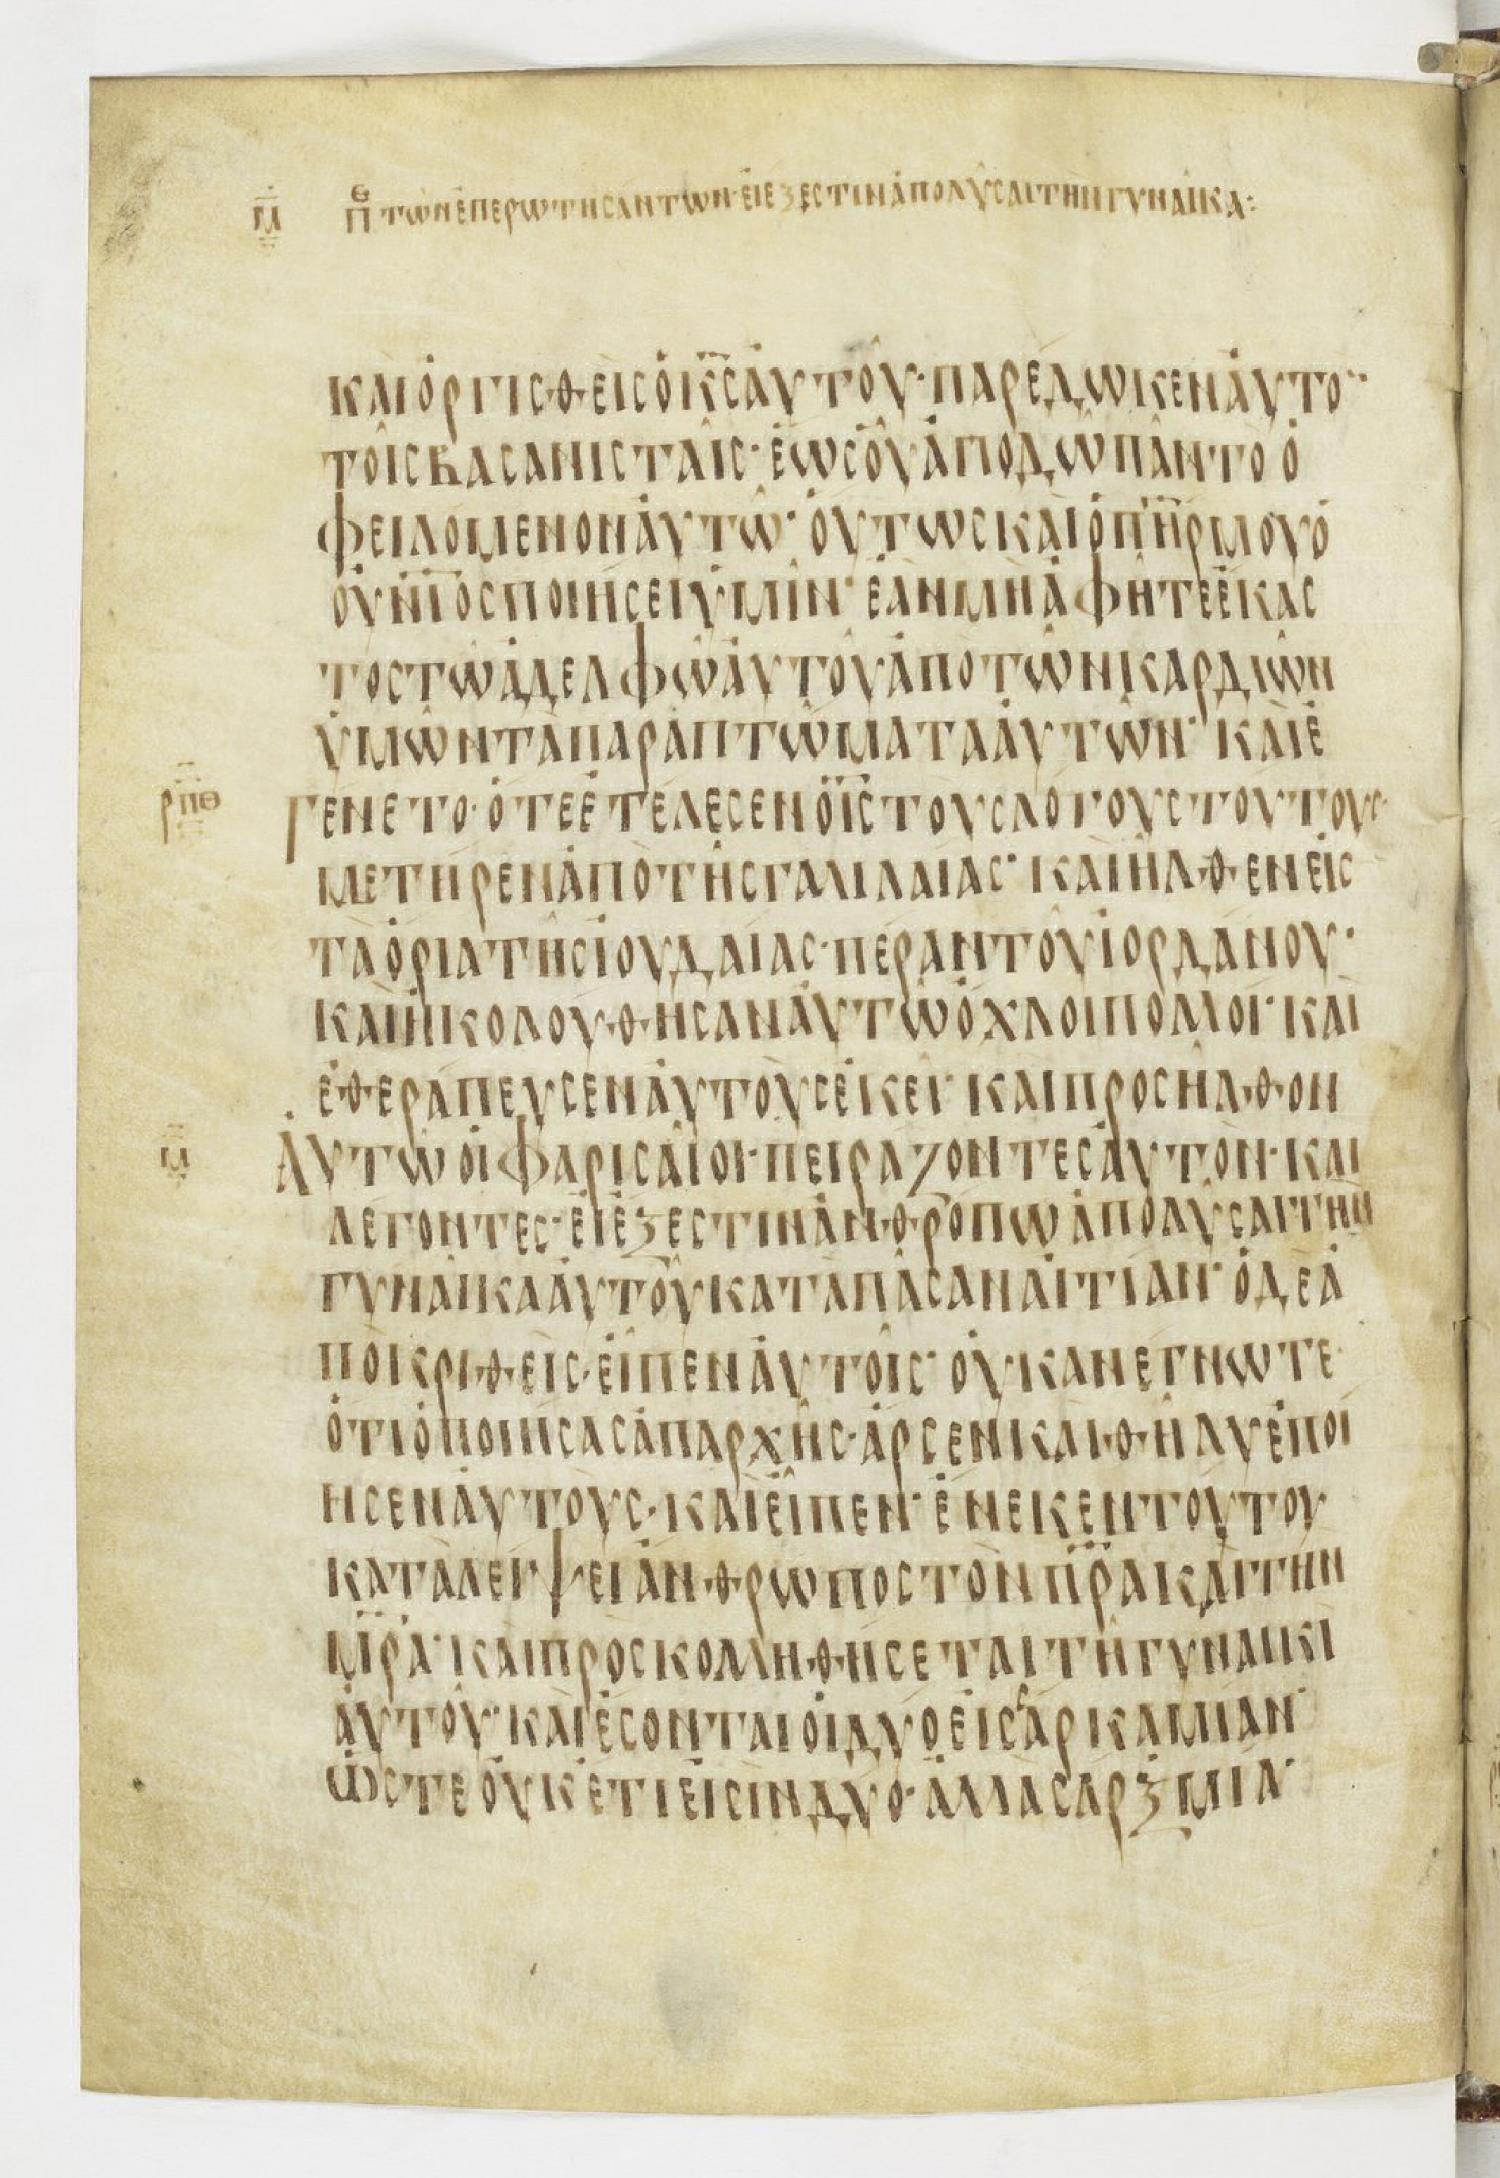 Μ ΠΕ ΤΩΝ ΕΠΕΡΩΤΗΣΑΝΤΩΝ· ΕΙ ΕΞΕΣΤΙΝ ΑΠΟΛΥΣΑΙ ΤΗΝ ΓΥΝΑΙΚΑ:
ΚΑΙ ΟΡΓΙΣΘΕΙΣ Ο ΚΣ ΑΥΤΟΥ· ΠΑΡΕΔΩΚΕΝ ΑΥΤΟ
ΤΟΙΣ ΒΑΣΑΝΙΣΤΑΙΣ· ΕΩΣ ΟΥ ΑΠΟΔΩ ΠΑΝ ΤΟ Ο
ΦΕΙΛΟΜΕΝΟΝ ΑΥΤΩ· ΟΥΤΩΣ ΚΑΙ Ο ΠΗΡ ΜΟΥ Ο
ΟΥΝΙΟΣ ΠΟΙΗΣΕΙ ΥΜΙΝ· ΕΑΝ ΜΗ ΑΦΗΤΕ ΕΚΑΣ
ΤΟΣ ΤΩ ΑΔΕΛΦΩ ΑΥΤΟΥ ΑΠΟ ΤΩΝ ΚΑΡΔΙΩΝ
ΥΜΩΝ ΤΑ ΠΑΡΑΠΤΩΜΑΤΑ ΑΥΤΩΝ· ΚΑΙ Ε
ΡΠΘ ΓΕΝΕΤΟ· ΟΤΕ ΕΤΕΛΕΣΕΝ Ο ΙΣ ΤΟΥΣ ΛΟΓΟΥΣ ΤΟΥΤΟΥΣ·
ΜΕΤΗΡΕΝ ΑΠΟ ΤΗΣ ΓΑΛΙΛΑΙΑΣ· ΚΑΙ ΗΛΘΕΝ ΕΙΣ
ΤΑ ΟΡΙΑ ΤΗΣ ΙΟΥΔΑΙΑΣ· ΠΕΡΑΝ ΤΟΥ ΙΟΡΔΑΝΟΥ·
ΚΑΙ ΗΚΟΛΟΥΘΗΣΑΝ ΑΥΤΩ ΟΧΛΟΙ ΠΟΛΛΟΙ· ΚΑΙ
ΕΘΕΡΑΠΕΥΣΕΝ ΑΥΤΟΥΣ ΕΚΕΙ· ΚΑΙ ΠΡΟΣΗΛΘΟΝ
Μ ΑΥΤΩ ΟΙ ΦΑΡΙΣΑΙΟΙ· ΠΕΙΡΑΖΟΝΤΕΣ ΑΥΤΟΝ· ΚΑΙ
ΛΕΓΟΝΤΕΣ· ΕΙ ΕΞΕΣΤΙΝ ΑΝΘΡΟΠΩ ΑΠΟΛΥΣΑΙ ΤΗΝ
ΓΥΝΑΙΚΑ ΑΥΤΟΥ ΚΑΤΑ ΠΑΣΑΝ ΑΙΤΙΑΝ· Ο ΔΕ Α
ΠΟΚΡΙΘΕΙΣ· ΕΙΠΕΝ ΑΥΤΟΙΣ· ΟΥΚ ΑΝΕΓΝΩΤΕ·
ΟΤΙ Ο ΠΟΙΗΣΑΣ ΑΠ ΑΡΧΗΣ· ΑΡΣΕΝ ΚΑΙ ΘΗΛΥ ΕΠΟΙ
ΗΣΕΝ ΑΥΤΟΥΣ· ΚΑΙ ΕΙΠΕΝ· ΕΝΕΚΕΝ ΤΟΥΤΟΥ
ΚΑΤΑΛΕΙΨΕΙ ΑΝΘΡΩΠΟΣ ΤΟΝ ΠΡΑ ΚΑΙ ΤΗΝ
ΜΡΑ· ΚΑΙ ΠΡΟΣΚΟΛΛΗΘΗΣΕΤΑΙ ΤΗ ΓΥΝΑΙΚΙ
ΑΥΤΟΥ· ΚΑΙ ΕΣΟΝΤΑΙ ΟΙ ΔΥΟ ΕΙΣ ΣΑΡΚΑ ΜΙΑΝ·
ΩΣΤΕ ΟΥΚΕΤΙ ΕΙΣΙΝ ΔΥΟ· ΑΛΛΑ ΣΑΡΞ ΜΙΑ·